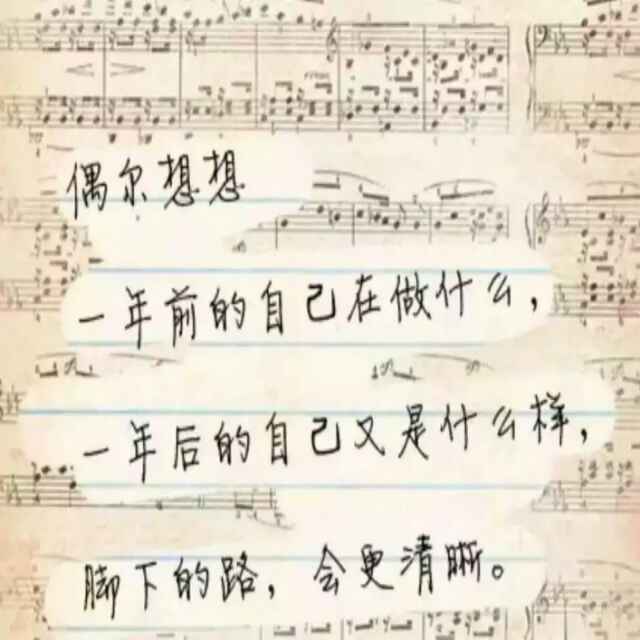 偶尔想想
一年前的自己在做什么，
一年后的自己又是什么样，
脚下的路，会更清晰。